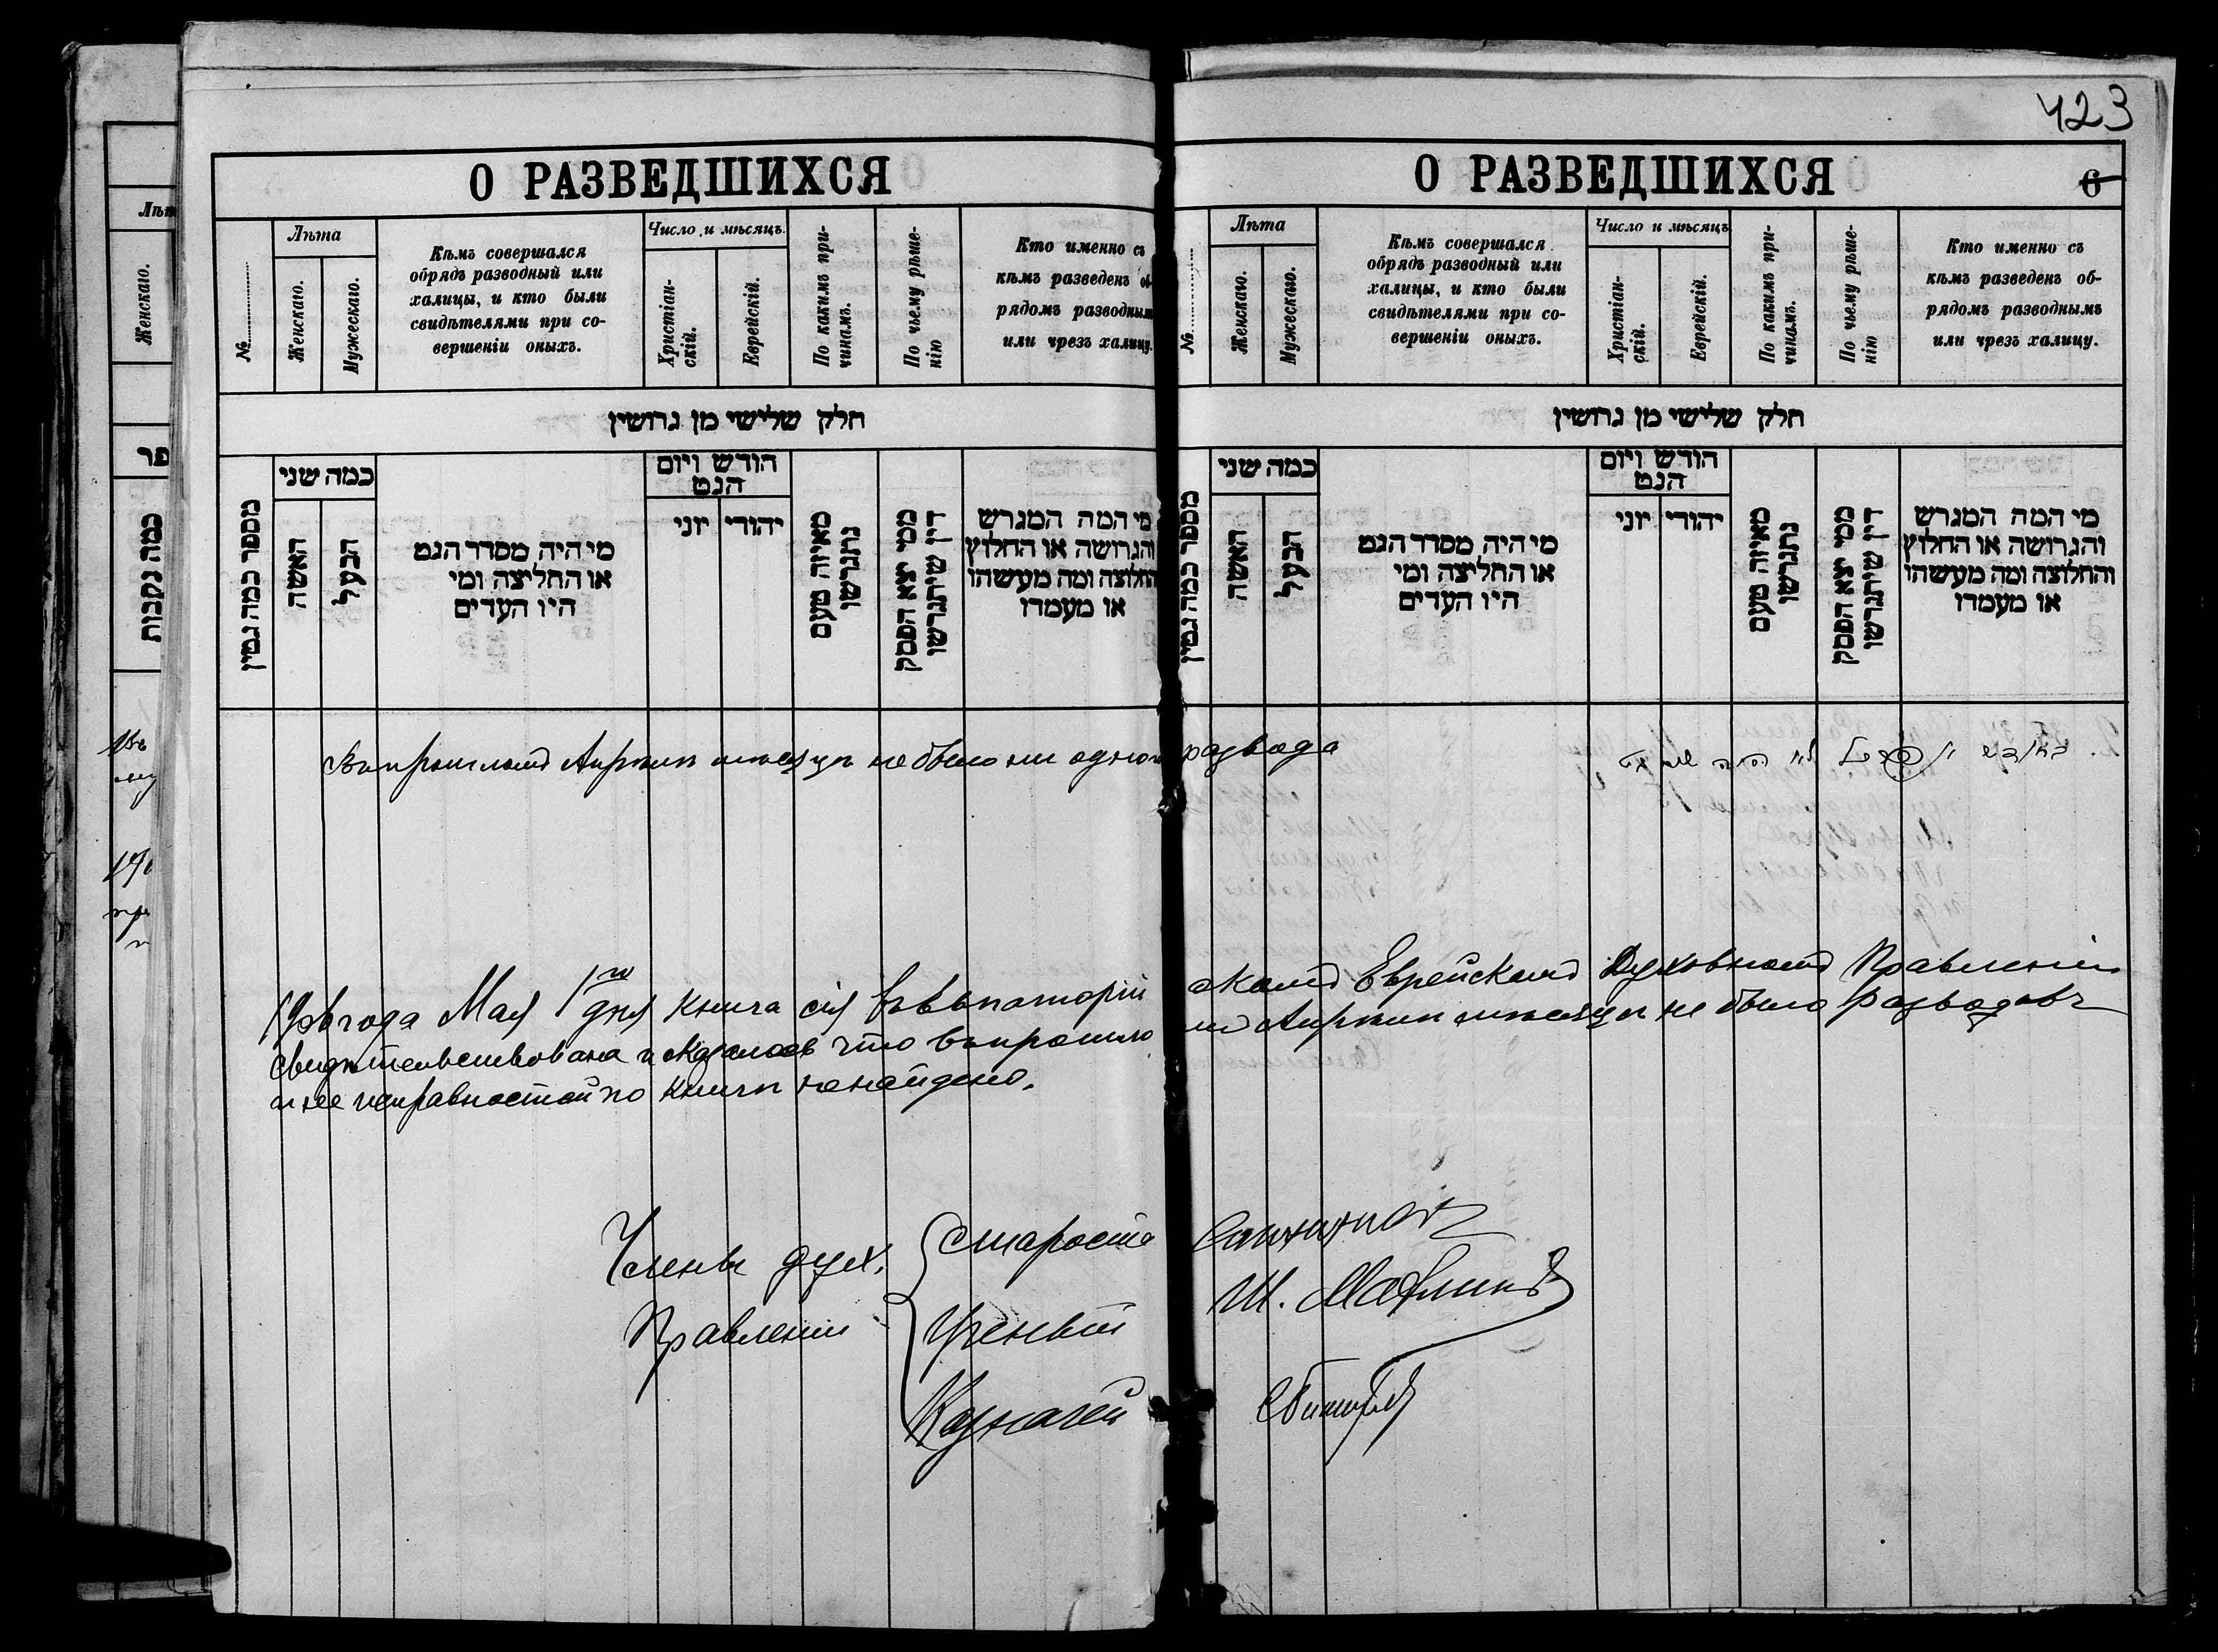 423
О РАЗВЕДШИХСЯ
№
Лѣта
Женскаго.
Мужескаго.
Кѣмъ совершался
обрядъ разводный или
халицы, и кто были
свидѣтелями при со-
вершеніи оныхъ.
Число и мѣсяцъ.
Христіан-
скій.
Еврейскій.
По какимъ при-
чинамъ.
По чьему рѣше-
нію
Кто именно съ
кѣмъ разведенъ об-
рядомъ разводным
или чрезъ халицу.
חלק שלישי מן גרושין
מספר כמה גטין
כמה שני
האשה
הבעל
מי היה מסדר הגט
או החליצה ומי
היו העדים
חודש ויום
הגט
יוני
יהודי
מאיזה טעם
נתגרשו
ממי יצא הפסק
דין שיתגרשו
מי המה המגרש
והגרושה או החלוץ
והחלוצה ומה מעשהו
או מעמדו
О РАЗВЕДШИХСЯ
6
№
Лѣта
Женскаго.
Мужескаго.
Кѣмъ совершался
обрядъ разводный или
халицы, и кто были
свидѣтелями при со-
вершеніи оныхъ.
Число и мѣсяцъ
Христіан-
скій.
Еврейскій.
По какимъ при-
чинамъ.
По чьему рѣше-
нію
Кто именно съ
кѣмъ разведенъ об-
рядомъ разводнымъ
или чрезъ халицу.
חלק שלישי מן גרושין
מספר כמה גטין
כמה שני
האשה
הבעל
מי היה מסדר הגט
או החליצה ומי
היו העדים
חודש ויום
הגט
יוני
יהודי
מאיזה טעם
נתגרשו
ממי יצא הפסק
דין שיתגרשו
מי המה המגרש
והגרושה או החלוץ
והחלוצה ומה מעשהו
או מעמדו
Въ прошломъ Апрѣлѣ мѣсяцѣ не было ни одного развода
года Мая 1го дня книга сія въ Евпаторійскомъ Еврейскомъ Духовномъ Правленіи
свидѣтельствована и оказалось что въ прошломъ Апрѣлѣ мѣсяцѣ не было разводовъ
и неисправностей по книгѣ не найдено.
Члены дух.
Правленія
Староста
Ученый
Казначей
Ш.